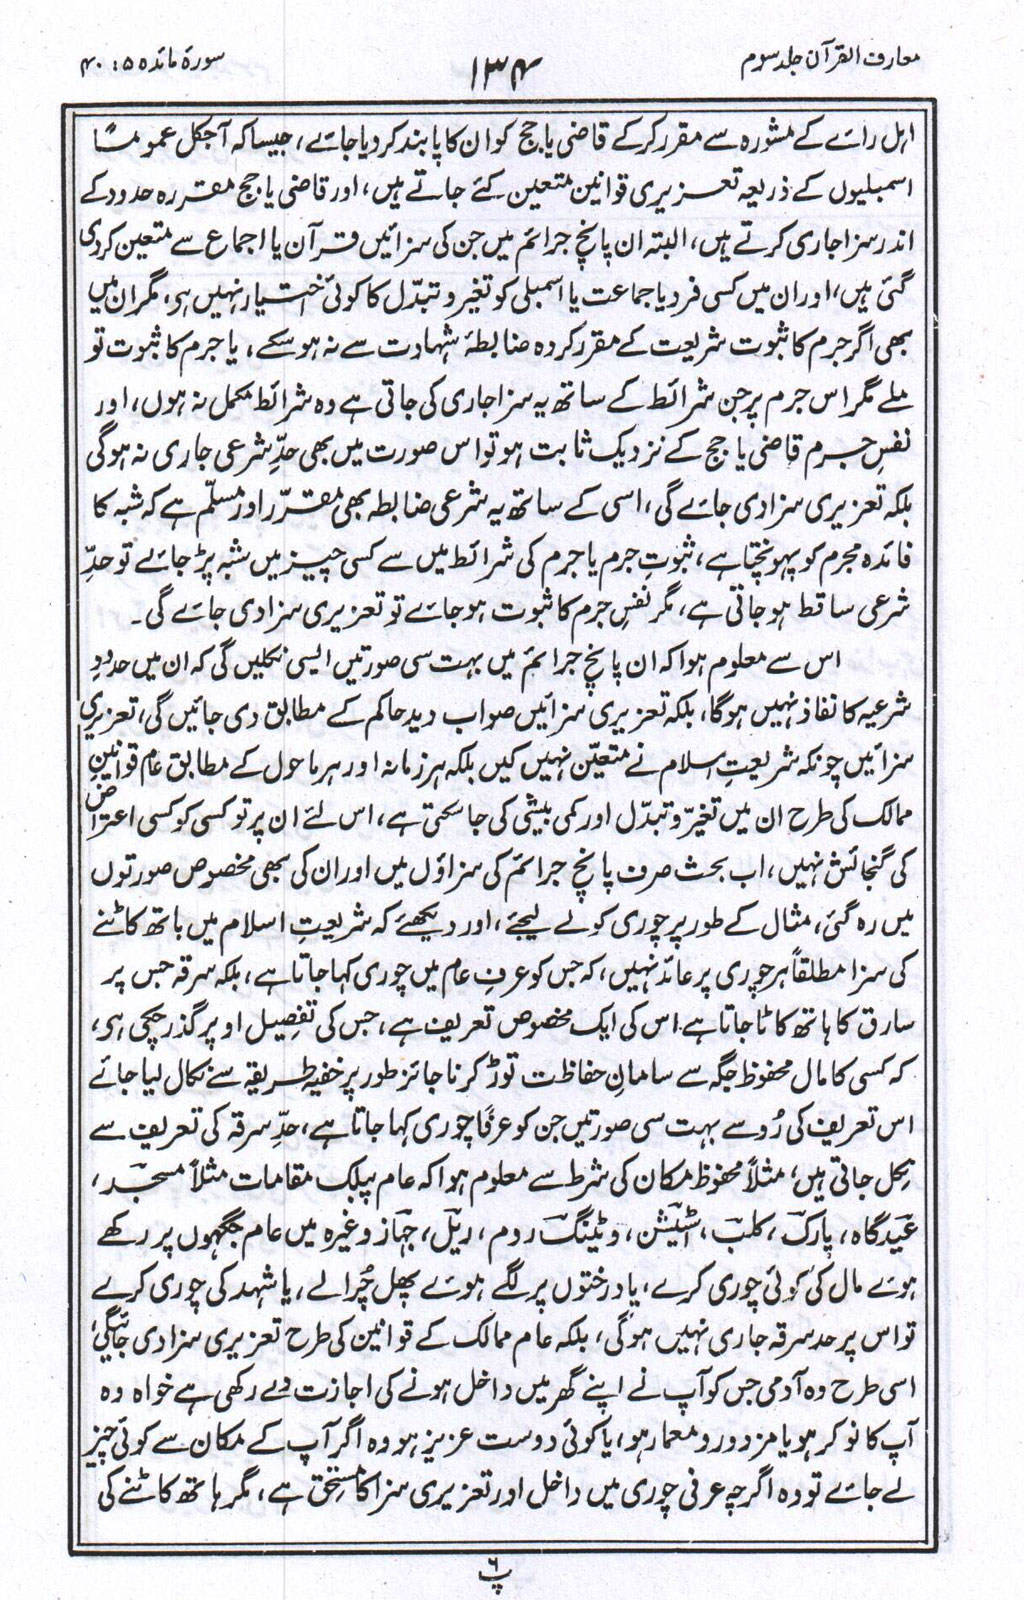 معارف القرآن جلد سوم
۱۳۴
سورۂ مائدہ ۵ : ۴۰
اہل رائے کے مشورہ سے مقرر کرکے قاضی یا جج کو ان کا پابند کردیا جائے، جیسا کہ آجکل عموماً
اسمبلیوں کے ذریعہ تعزیری قوانین متعین کئے جاتے ہیں، اور قاضی یا جج مقررہ حدود کے
اندر سزا جاری کرتے ہیں، البتہ ان پانچ جرائم میں جن کی سزائیں قرآن یا اجماع سے متعین کردی
گئی ہیں، اور ان میں کسی فرد یا جماعت یا اسمبلی کو تغیر و تبدّل کا کوئی اختیار نہیں ہی، مگر ان میں
بھی اگر جرم کا ثبوت شریعت کے مقرر کردہ ضابطۂ شہادت سے نہ ہوسکے، یا جرم کا ثبوت تو
ملے مگر اس جرم پر جن شرائط کے ساتھ یہ سزا جاری کی جاتی ہے وہ شرائط مکمل نہ ہوں، اور
نفسِ جرم قاضی یا جج کے نزدیک ثابت ہو تو اس صورت میں بھی حدِّ شرعی جاری نہ ہوگی
بلکہ تعزیری سزا دی جائے گی، اسی کے ساتھ یہ شرعی ضابطہ بھی مقرّر اور مسلّم ہے کہ شبہ کا
فائدہ مجرم کو پہونچتا ہے، ثبوتِ جرم یا جرم کی شرائط میں سے کسی چیز میں شبہ پڑجائے تو حدِّ
شرعی ساقط ہوجاتی ہے، مگر نفسِ جرم کا ثبوت ہوجائے تو تعزیری سزا دی جائے گی۔
اس سے معلوم ہوا کہ ان پانچ جرائم میں بہت سی صورتیں ایسی نکلیں گی کہ ان میں حدودِ
شرعیہ کا نفاذ نہیں ہوگا، بلکہ تعزیری سزائیں صواب دید حاکم کے مطابق دی جائیں گی، تعزیری
سزائیں چونکہ شریعتِ اسلام نے متعیّن نہیں کیں بلکہ ہر زمانہ اور ہر ماحول کے مطابق عام قوانینِ
ممالک کی طرح ان میں تغیّر و تبدّل اور کمی بیشی کی جاسکتی ہے، اس لئے ان پر تو کسی کو کسی اعتراض
کی گنجائش نہیں، اب بحث صرف پانچ جرائم کی سزاؤں میں اور ان کی بھی مخصوص صورتوں
میں رہ گئی، مثال کے طور پر چوری کو لے لیجئے، اور دیکھئے کہ شریعتِ اسلام میں ہاتھ کاٹنے
کی سزا مطلقاً ہر چوری پر عائد نہیں، کہ جس کو عرفِ عام میں چوری کہا جاتا ہے، بلکہ سرقہ جس پر
سارق کا ہاتھ کاٹا جاتا ہے اس کی ایک مخصوص تعریف ہے، جس کی تفصیل اوپر گذر چکی ہی،
کہ کسی کا مال محفوظ جگہ سے سامانِ حفاظت توڑ کر ناجائز طور پر خفیہ طریقہ سے نکال لیا جائے
اس تعریف کی رُو سے بہت سی صورتیں جن کو عرفًا چوری کہا جاتا ہے، حدِّ سرقہ کی تعریف سے
نکل جاتی ہیں؛ مثلاً محفوظ مکان کی شرط سے معلوم ہوا کہ عام پبلک مقامات مثلاً مسجد،
عیدگاہ، پارک، کلب، اسٹیشن، ویٹنگ روم، ریل، جہاز وغیرہ میں عام جگہوں پر رکھے
ہوئے مال کی کوئی چوری کرے، یا درختوں پر لگے ہوئے پھل چُرالے، یا شہد کی چوری کرے
تو اس پر حد سرقہ جاری نہیں ہوگی، بلکہ عام ممالک کے قوانین کی طرح تعزیری سزا دی جائیگی،
اسی طرح وہ آدمی جس کو آپ نے اپنے گھر میں داخل ہونے کی اجازت دے رکھی ہے خواہ وہ
آپ کا نوکر ہو یا مزدور و معمار ہو، یا کوئی دوست عزیز ہو وہ اگر آپ کے مکان سے کوئی چیز
لے جائے تو وہ اگرچہ عرفی چوری میں داخل اور تعزیری سزا کا مستحق ہے، مگر ہاتھ کاٹنے کی
پ ۶